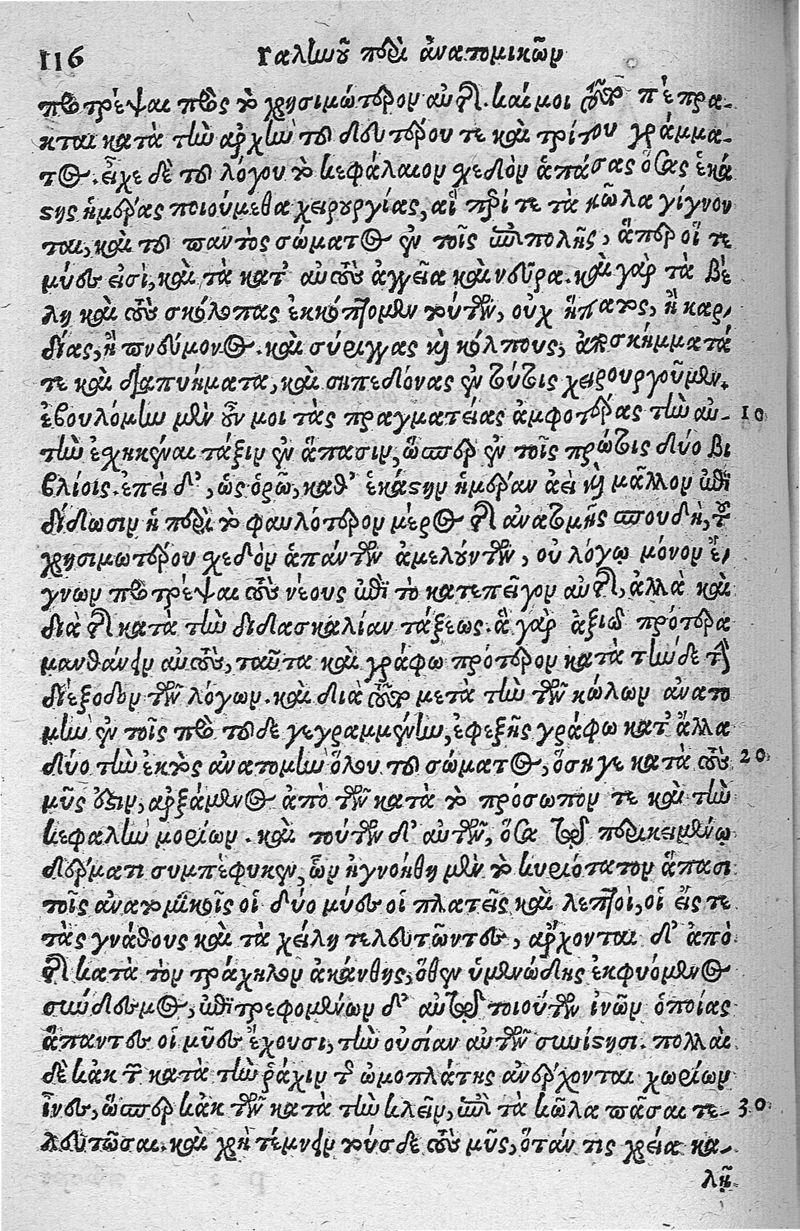 116 Γαληνοῦ περὶ ἀνατομικῶν
προτρέψαι πρὸς τὸ χρησιμώτερον αὐτῆς. καί μοι τοῦτο πέπρα-
κται κατὰ τὴν ἀρχὴν τοῦ δευτέρου τε καὶ τρίτου γράμμα-
τος. εἶχε δὲ τοῦ λόγου τὸ κεφάλαιον σχεδὸν ἁπάσας ὅσας ἑκά
στης ἡμέρας ποιούμεθα χειρουργίας, αἳ περί τε τὰ κῶλα γίγνον
ται, καὶ τοῦ παντὸς σώματος ἐν τοῖς ἐπιπολῆς, ἅπερ οἵ τε
μύες εἰσὶ, καὶ τὰ κατ' αὐτοὺς ἀγγεῖα καὶ νεῦρα. καὶ γὰρ τὰ βέ
λη καὶ τοὺς σκόλοπας ἐκκόπτομεν τούτων, οὐχ ἥπατος, ἢ καρ/
δίας, ἢ πνεύμονος. καὶ σύριγγας καὶ κόλπους, ἀποσκήμματά
τε καὶ διαπυήματα, καὶ σηπεδόνας ἐν τούτοις χειρουργοῦμεν.
ἐβουλόμην μὲν οὖν μοι τὰς πραγματείας ἀμφοτέρας τὴν αὐ- 10
τὴν ἐσχηκέναι τάξιν ἐν ἅπασιν, ὥσπερ ἐν τοῖς πρώτοις δύο βι
βλίοις. ἐπεὶ δ', ὡς ὁρῶ, καθ' ἑκάστην ἡμέραν ἀεὶ καὶ μᾶλλον ἐπι
δίδωσιν ἡ περὶ τὸ φαυλότερον μέρος τῆς ἀνατομῆς σπουδὴ, τοῦ
χρησιμωτέρου σχεδὸν ἁπάντων ἀμελούντων, οὐ λόγῳ μόνον ἔ/
γνων προτρέψαι τοὺς νέους ἐπὶ τὸ κατεπεῖγον αὐτῆς, ἀλλὰ καὶ
διὰ τῆς κατὰ τὴν διδασκαλίαν τάξεως. ἃ γὰρ ἀξιῶ πρότερα
μανθάνειν αὐτοὺς, ταῦτα καὶ γράφω πρότερον κατὰ τήνδε τὴν
διέξοδον τῶν λόγων. καὶ διὰ τοῦτο μετὰ τὴν τῶν κώλων ἀνατο
μὴν ἐν τοῖς πρὸ τοῦδε γεγραμμένην, ἐφεξῆς γράφω κατ' ἄλλα
δύο τὴν ἐκτὸς ἀνατομὴν ὅλου τοῦ σώματος, ὅση γε κατὰ τοὺς 20
μῦς ἐστιν, ἀρξάμενος ἀπὸ τῶν κατὰ τὸ πρόσωπόν τε καὶ τὴν
κεφαλὴν μορίων. καὶ τούτων δ' αὐτῶν, ὅσα τῷ περικειμένῳ
δέρματι συμπέφυκεν, ὧν ἠγνοήθη μὲν τὸ κυριότατον ἅπασι
τοῖς ἀνατομικοῖς οἱ δύο μύες οἱ πλατεῖς καὶ λεπτοὶ, οἱ εἴς τε
τὰς γνάθους καὶ τὰ χείλη τελευτῶντες, ἄρχονται δ' ἀπὸ
τῆς κατὰ τὸν τράχηλον ἀκάνθης, ὅθεν ὑμενώδης ἐκφυόμενος
σύνδεσμος, ἐπιτρεφομένων δ' αὐτῷ τοιούτων ἰνῶν ὁποίας
ἅπαντες οἱ μῦες ἔχουσι, τὴν οὐσίαν αὐτῶν συνίστησι. πολλαὶ
δὲ κἀκ τῶν κατὰ τὴν ῥάχιν τῆς ὠμοπλάτης ἀνέρχονται χωρίων
ἶνες, ὥσπερ κἀκ τῶν κατὰ τὴν κλεῖν, ἐπὶ τὰ κῶλα πᾶσαι τε- 30
λευτῶσαι. καὶ χρὴ τέμνειν τούσδε τοὺς μῦς, ὅταν τις χρεία κα-
λῇ